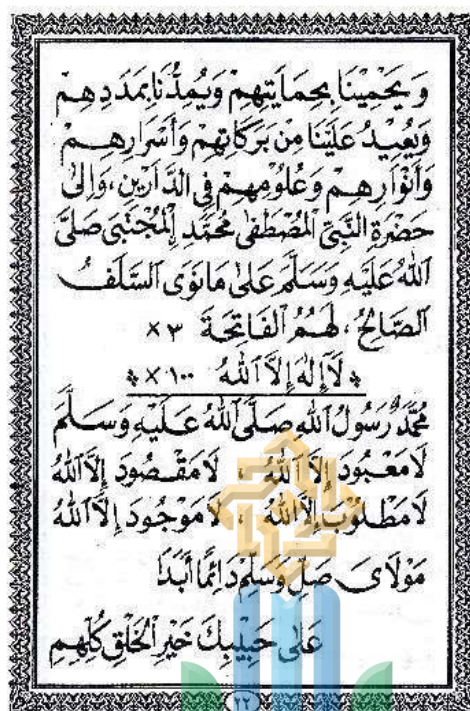 وَيَحْمِيْنَا بِحِمَايَتِهِمْ وَيُمِدُّنَا بِمَدَدِهِمْ
وَيُعِيْدُ عَلَيْنَا مِنْ بَرَكَاتِهِمْ وَأَسْرَارِهِمْ
وَأَنْوَارِهِمْ وَعُلُوْمِهِمْ فِي الدَّارَيْنِ، وَاِلَى
حَضْرَةِ النَّبِيِّ الْمُصْطَفَى مُحَمَّدٍ اِلْمُجْتَبَى صَلَّى
اللّٰهُ عَلَيْهِ وَسَلَّمَ عَلَى مَا نَوَى السَّلَفُ
الصَّالِحُ، لَهُمُ الْفَاتِحَةَ ٣ ×
* لَا إِلٰهَ إِلَّا اللّٰهُ ١٠٠ × *
مُحَمَّدٌ رَسُوْلُ اللّٰهِ صَلَّى اللّٰهُ عَلَيْهِ وَسَلَّمَ
لَا مَعْبُوْدَ إِلَّا اللّٰهُ ، لَا مَقْصُوْدَ إِلَّا اللّٰهُ
لَا مَطْلُوْبَ إِلَّا اللّٰهُ ، لَا مَوْجُوْدَ إِلَّا اللّٰهُ
مَوْلَايَ صَلِّ وَسَلِّمْ دَائِمًا أَبَدًا
عَلَى حَبِيْبِكَ خَيْرِ الْخَلْقِ كُلِّهِمِ
٢٢